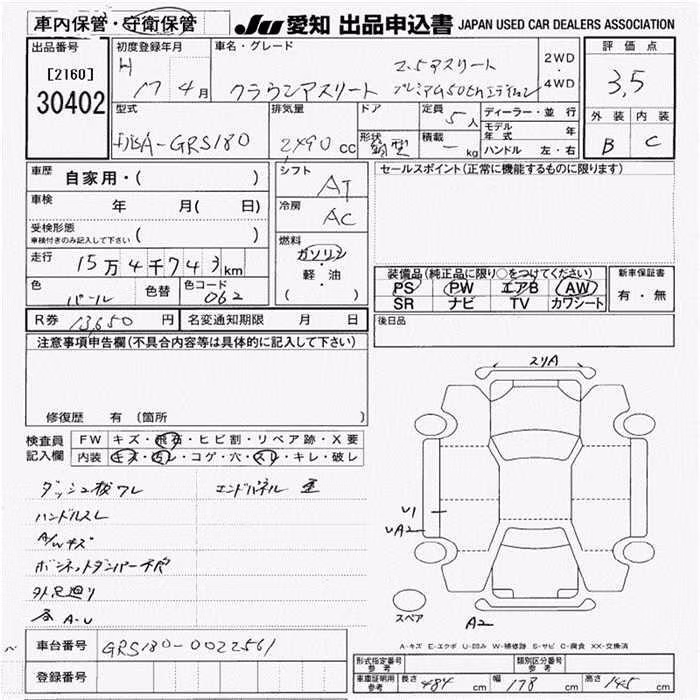 車内保管・守衛保管
JU 愛知 出品申込書 JAPAN USED CAR DEALERS ASSOCIATION
出品番号
[2160]
30402
初度登録年月
H 17 4月
車名・グレード
クラウンアスリート
2.5アスリート
プレミアム50thエディション
2WD
・
4WD
評価点
3,5
外装 内装
B C
型式
DBA-GRS180
排気量
2,490 cc
ドア
形状
定員 5人
積載 ー kg
ディーラー・並行
モデル年式 年
ハンドル 左・右
車歴 自家用・( )
車検 年 月( 日)
受検形態
車検付きのみ記入して下さい ( )
走行 15万4千743km
色 パール 色替 色コード 062
R券 13,650 円 名変通知期限 月 日
シフト AT
冷房 AC
燃料
ガソリン
・
軽・油
( )
セールスポイント(正常に機能するものに限ります)
装備品(純正品に限り○をつけてください)
PS PW エアB AW
SR ナビ TV カワシート
新車保証書
有・無
後日品
注意事項申告欄(不具合内容等は具体的に記入して下さい)
修復歴 有 〔箇所 〕
検査員記入欄
FW キズ・飛石・ヒビ割・リペア跡・X要
内装 キズ・汚レ・コゲ・穴・スレ・キレ・破レ
ダッシュ板ワレ エンドパネル 歪
ハンドルスレ
A/Wキズ
ボンネットダンパー不良
外足廻り
各 A-U
スリA
U1
UA2
A2
スペア
A-キズ E-エクボ U-凹み W-補修跡 S-サビ C-腐食 XX-交換済
車台番号 GRS180-0022561
登録番号
形式指定番号 参考
類別区分番号 参考
車庫証明用 参考 長さ 484 cm 幅 178 cm 高さ 145 cm